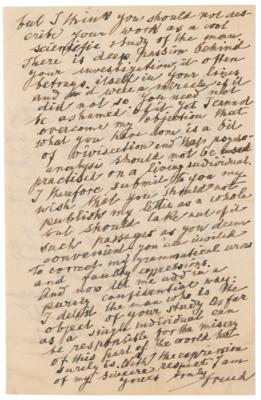 but I think you should not des-
cribe your work as a cool
scientific study of the man.
There is deep passion behind
your investigation, it often
betrays itself in your lines
and it were a miracle if it
did not so. You need not
be ashamed of it. Yet I cannot
overcome my objection that
what you have done is a bit
of Vivisection and that psycho-
analysis should not be used
practised on a living individual.
I therefore submit to you my
wish that you should not
publish my letter as a whole
but should take out of it
such passages as you deem
convenient, you are invited
to correct my grammatical errors
and faulty expressions.
And now let me add in a
purely confidential way:
I detest the man who is the
object of your study. As far
as a single individual can
be responsible for the misery
of this part of the world he
surely is. With the expression
of my sincere respect I am
yours truly
Freud